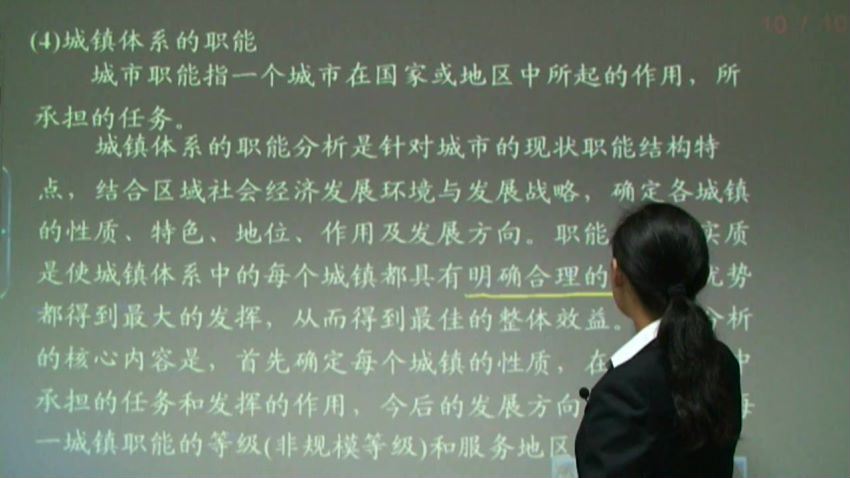 10 / 10
(4)城镇体系的职能
城市职能指一个城市在国家或地区中所起的作用，所
承担的任务。
城镇体系的职能分析是针对城市的现状职能结构特
点，结合区域社会经济发展环境与发展战略，确定各城镇
的性质、特色、地位、作用及发展方向。职能 实质
是使城镇体系中的每个城镇都具有明确合理的 优势
都得到最大的发挥，从而得到最佳的整体效益。 分析
的核心内容是，首先确定每个城镇的性质，在 中
承担的任务和发挥的作用，今后的发展方向 每
一城镇职能的等级(非规模等级)和服务地区